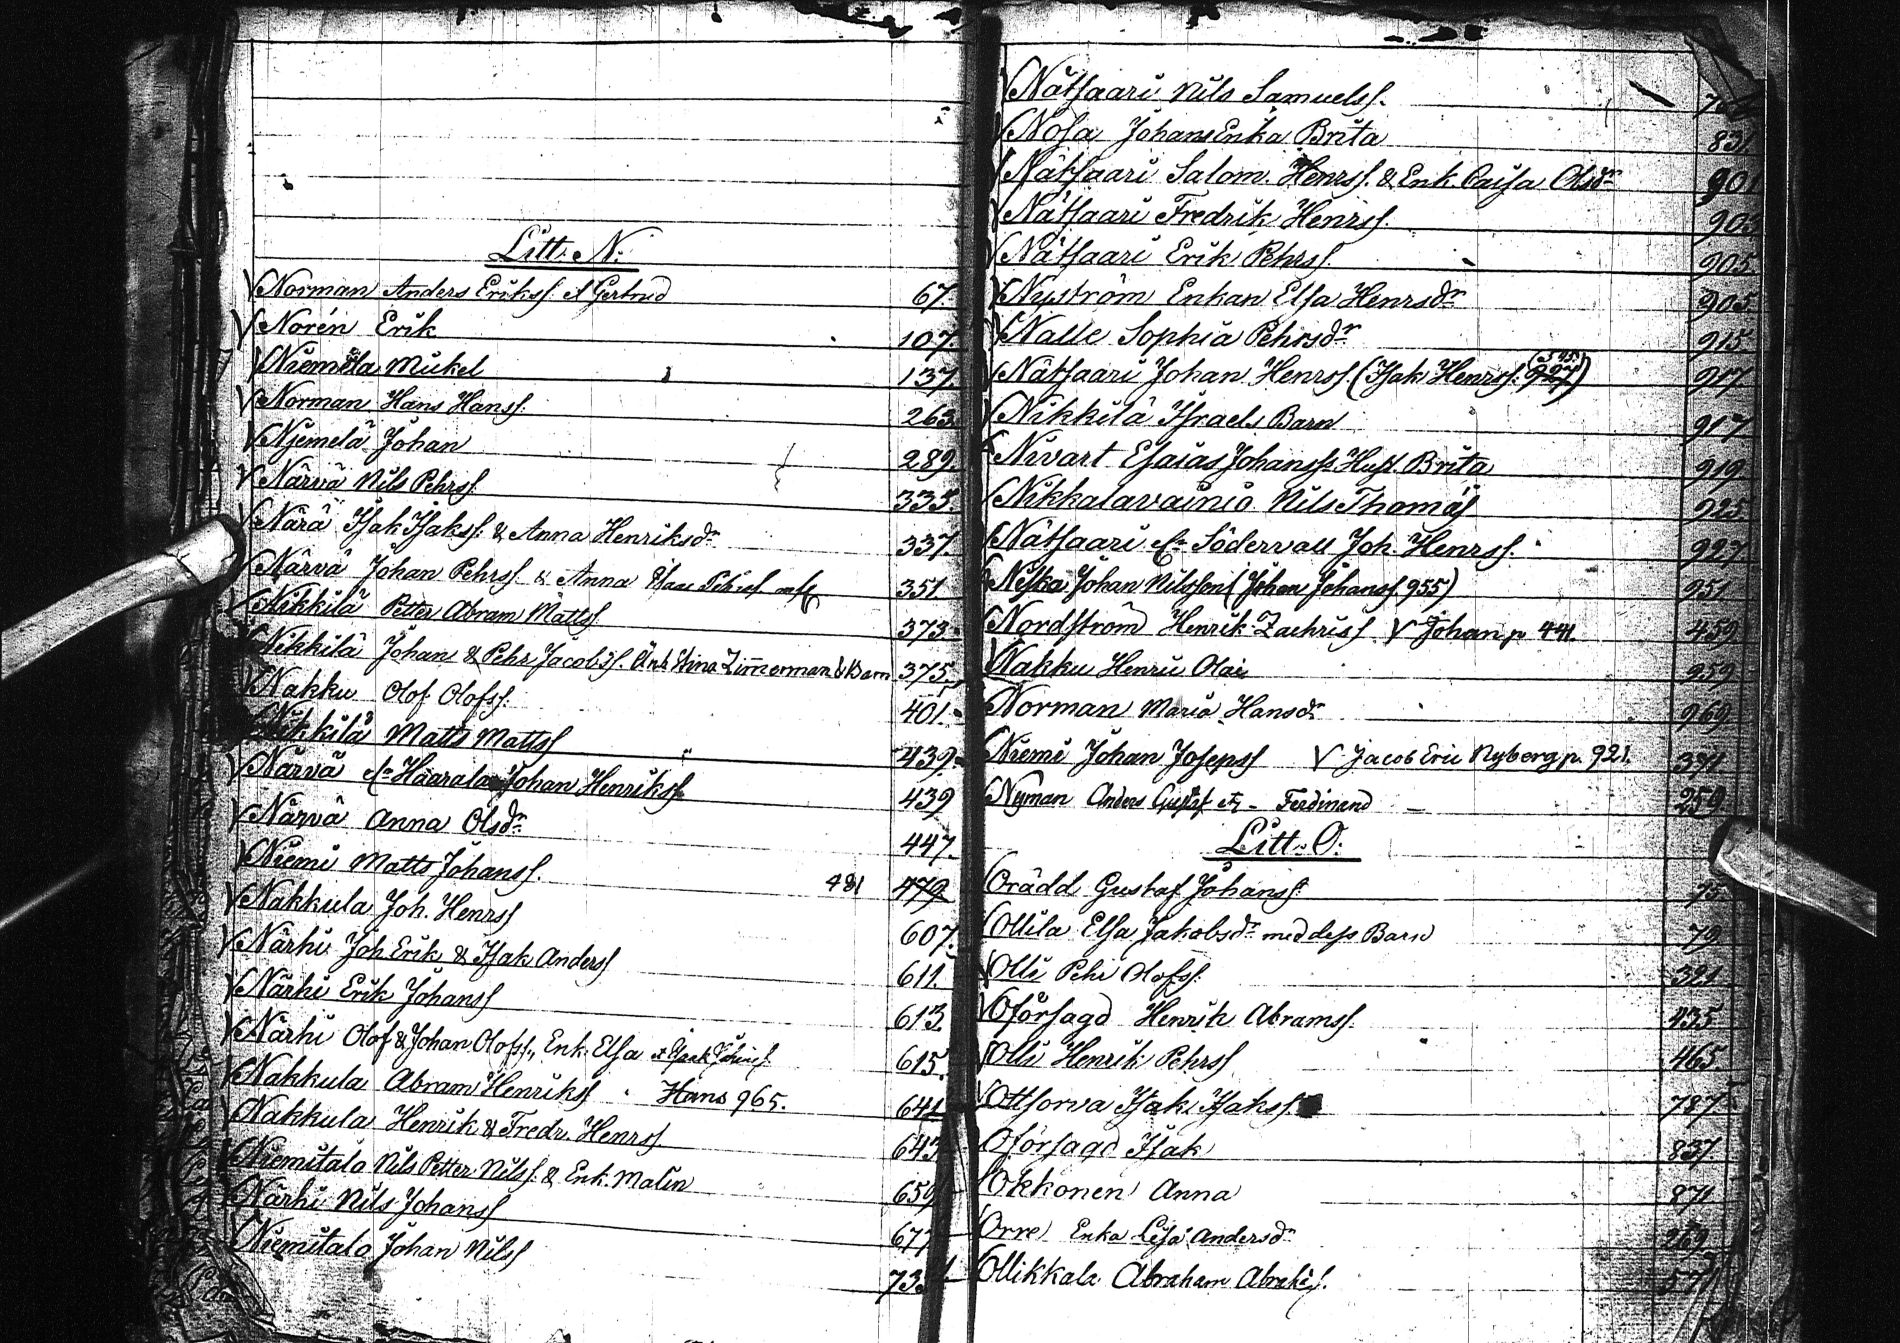 Litt. N:
Norman Anders Erikss. & Gertrud 67.
Norén Erik 107.
Niemelä Mickel 137.
Norman Hans Hanss. 263.
Njemelä Johan 289.
Närvä Nils Pehrss. 335.
Närä Isak Isakss. & Anna Henriksdr 337.
Närvä Johan Pehrss. & Anna 351
Nikkilä Petter Abram Mattss 373.
Nikkilä Johan & Pehr Jacobss. Enk Stina Zimmerman & Barn 375.
Nakku Olof Olofss. 401.
Nikkilä Matts Mattss 439.
Närvä Haarala Johan Henrikss. 439
Närvä Anna Olsdr 447.
Niemi Matts Johanss. 481 479
Nakkula Joh. Henrss 607.
Närhi Joh Erik & Isak Anderss 611.
Närhi Erik Johanss 613.
Närhi Olof & Johan Olofss., Enk. Elsa & Isak 615.
Nakkula Abram Henrikss Hans 965. 641
Nakkula Henrik & Fredr. Henrss. 643
Niemitalo Nils Petter Nilss. & Enk. Malin 659
Närhi Nils Johanss 677
Niemitalo Johan Nilss
Nätsaari Nils Samuelss.
Nosa Johans Enka Brita 831.
Nätsaari Salom. Henrss. & Enk. Caisa Olsdr 901
Nätsaari Fredrik Henrss. 903
Nätsaari Erik Pehrss. 905.
Nyström Enkan Elsa Henrsdr 905.
Nalle Sophia Pehrsdr 915.
Nätsaari Johan Henrss. (Isak Henrss. 927) 917
Nikkilä Israels Barn 917
Nivart Esaias Johanss. Hust. Brita 919.
Nikkalavainio Nils Thomäs 925.
Nätsaari Södervall Joh. Henrss. 927.
Neska Johan Nilsson (Johan Johanss. 955) 951
Nordström Henrik Zachriss. V Johan p 441. 459
Nakku Henric Olai 959
Norman Maria Hansdr 969
Niemi Johan Josepss V Jacob Eric Nyberg p. 921.
Nyman Anders Gustaf Ferdinand 259
Litt. O:
Orädd Gustaf Johanss. 75.
Ollila Elsa Jakobsdr med dess Barn 79
Olli Pehr Olofss. 321
Oförsagd Henrik Abramss. 435
Olli Henrik Pehrss. 465.
Ottsorva Isak Isakss. 787
Oförsagd Isak 837
Okkonen Anna 871
Orre Enka Lisa Andersdr 269
Ollikkala Abraham Abrahs. 577